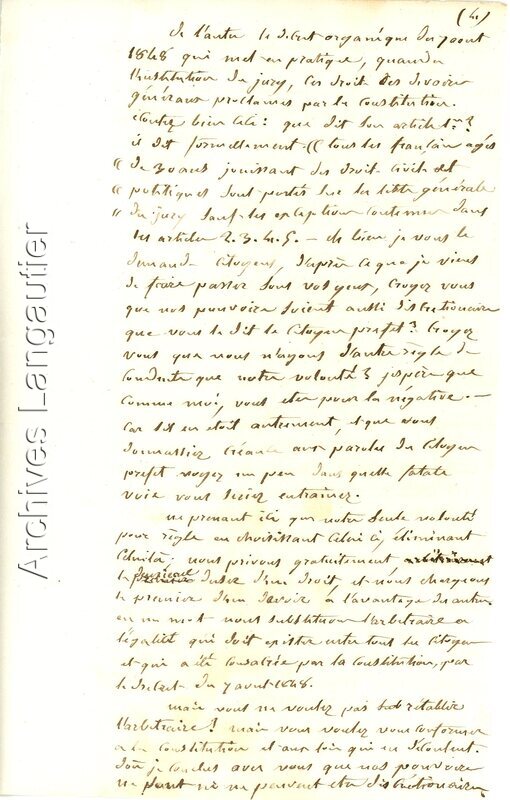 (4)
de l'autre le décret organique du 7 aout
1848 qui met en pratique, quand a
l'institution du jury, ces droit des devoirs
généraux proclamés par la constitution.
écoutez bien cela! que dit son article 1er?
il dit formellement. (( tous les français agés
(( de 30 ans jouissant des droits civils et
(( politiques sont portés sur la liste générale
(( du jury sauf les exceptions contenues dans
les articles 2. 3. 4. 5. — eh bien je vous le
demande Citoyens, d'après ce que je viens
de faire passer sous vos yeux, croyez vous
que nos pouvoirs soient aussi discrétionaire
que vous le dit le Citoyen prefet? Croyez
vous que nous n'ayons d'autre règle de
conduite que notre volonté? j'espère que
comme moi, vous etes pour la négative. —
Car s'il en etoit autrement, et que vous
donnassiez créance aux paroles du Citoyen
prefet voyez un peu dans quelle fatale
voie vous seriez entrainez.
ne prenant ici que notre seule volonté
pour règle en choisissant celui ci, éliminant
celui là; nous privons gratuitement
le second d'user d'un droit, et nous chargeons
le premier d'un devoir à l'avantage des autres
en un mot nous substituons l'arbitraire a
l'égalité qui doit exister entre tous les Citoyens
et qui a été consacrée par la constitution, par
le décret du 7 aout 1848.
mais vous ne voulez pas rétablir
l'arbitraire! mais vous voulez vous conformer
a la constitution et aux lois qui en découlent.
donc je conclus avec vous que nos pouvoirs
ne sont ni ne peuvent etre discrétionaires
Archives Langautier